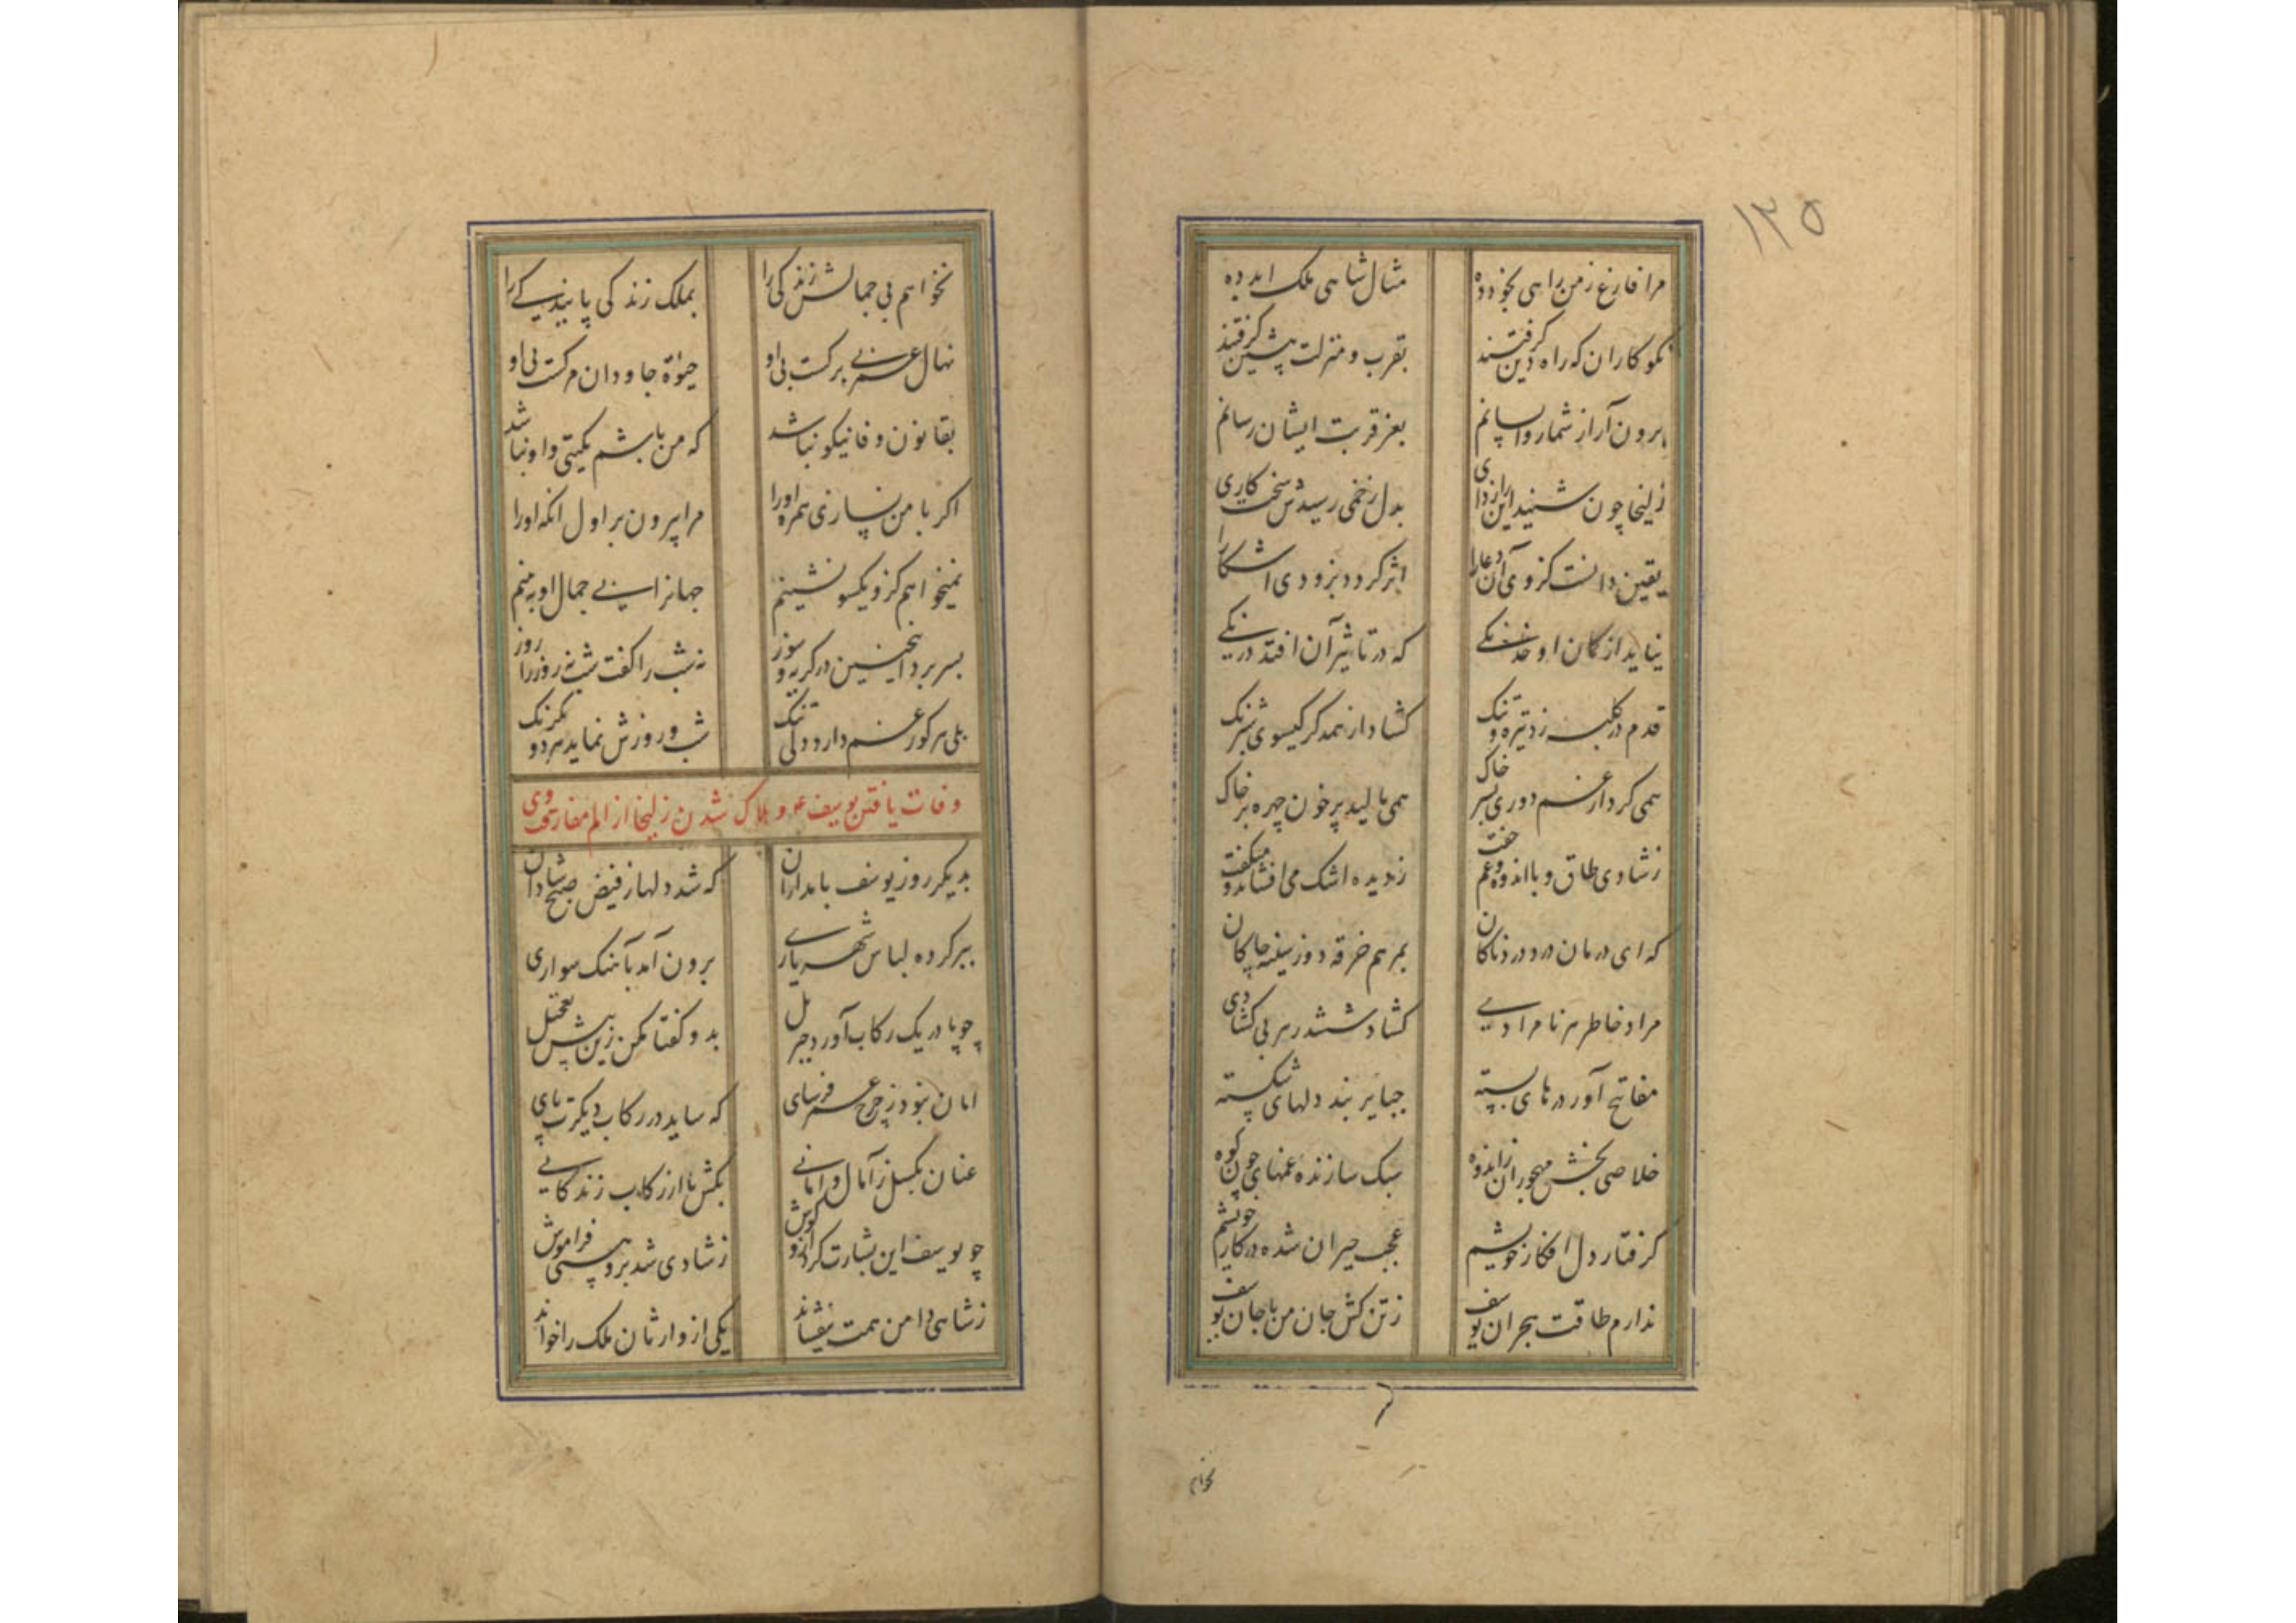 ۱۲۵
مرا فارغ ز من راهی بخود ده مثال شاهی ملک ابد ده
نکو کاران که راه دین گرفتند بقرب و منزلت پیشین گرفتند
برون آر از شمار واپسانم بعز قربت ایشان رسانم
زلیخا چون شنید این رازداری بدل زخمی رسیدش سخت کاری
یقین دانست کز وی آن دعا را اثر گردد بزودی آشکارا
نیاید از کمان او خدنگی که در تاثیر آن افتد درنگی
قدم در کلبه زد تیره و تنگ گشاد از همدگر گیسوی شبرنگ
همی کرد از غم دوری بسر خاک همی مالید پر خون چهره بر خاک
ز شادی طاق و با اندوه و غم جفت ز دیده اشک می افشاند و میگفت
که ای درمان درد دردناکان بمرهم خرقه دوز سینه چاکان
مراد خاطر هر نامرادی گشاد ششدر هر بی گشادی
مفاتح آور درهای بسته جبایر بند دلهای شکسته
خلاصی بخش مهجوران ز اندوه سبک سازنده غمهای چون کوه
گرفتار دل افکار خویشم عجب حیران شده در کار خویشم
ندارم طاقت هجران یوسف ز تن کش جان من با جان یوسف
نخواهم
نخواهم بی جمالش زندگی را بملک زندگی پایندگی را
نهال عمر بی برگست بی او حیوة جاودان مرگست بی او
بقانون وفا نیکو نباشد که من باشم بگیتی و او نباشد
اگر با من نسازی همره او را مرا بیرون بر اول آنگه او را
نمیخواهم کز و یکسو نشینم جهانرا بی جمال او ببینم
بسر برد اینچنین در گریه و سوز نه شب را گفت شب نه روز را روز
بلی هر کو ز غم دارد دلی تنگ شب و روزش نماید هر دو یکرنگ
وفات یافتن یوسف ع و هلاک شدن زلیخا از الم مفارقت وی
بدیگر روز یوسف بامدادان که شد دلها ز فیض صبح شادان
ببر کرده لباس شهریاری برون آمد بآهنگ سواری
چو پا در یک رکاب آورد جبریل بدو گفتا مکن زین بیش تعجیل
امان نبود ز چرخ عمر فرسای که ساید در رکاب دیگرت پای
عنان بگسل ز آمال و امانی بکش پا از رکاب زندگانی
چو یوسف این بشارت کرد ازو گوش ز شادی شد برو هستی فراموش
ز شاهی دامن همت بیفشاند یکی از وارثان ملک را خواند